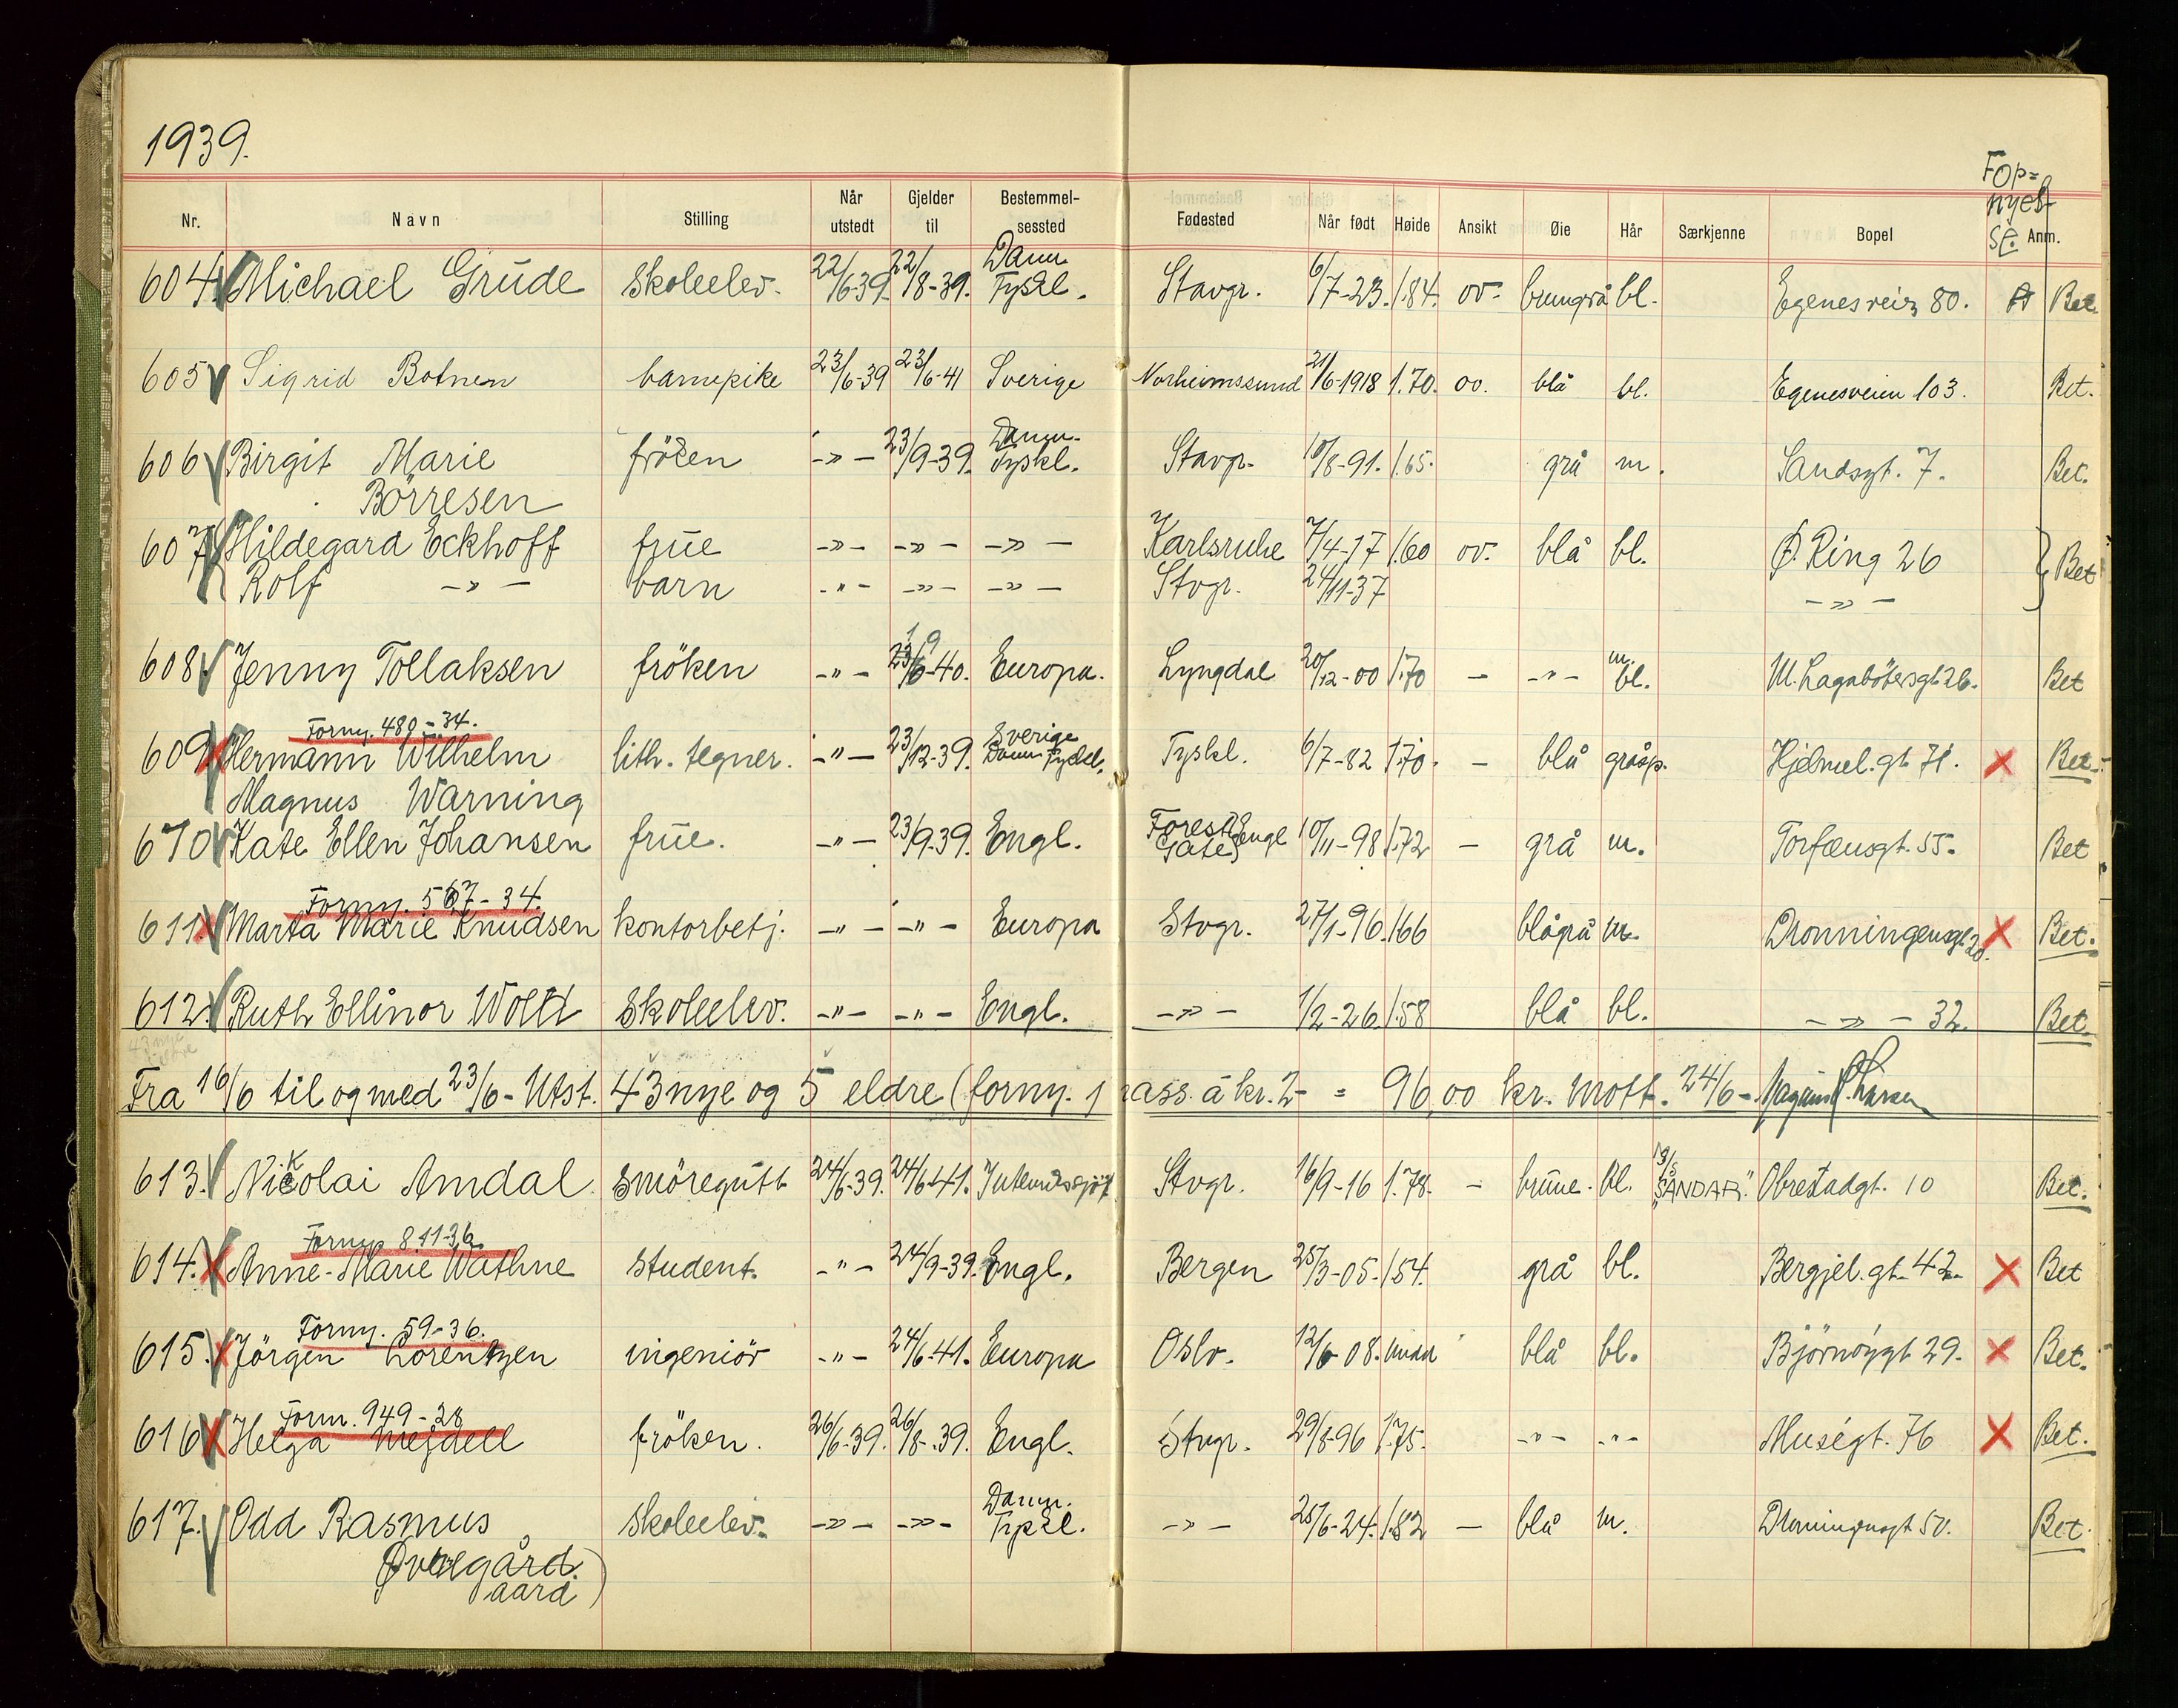 1939.
For-
nyel-
se.
Nr. Navn Stilling Når utstedt Gjelder til Bestemmel-sessted Fødested Når født Høide Ansikt Øie Hår Særkjenne Bopel Anm.
604. Michael Grude skoleelev. 22/6-39. 22/8-39. Danm. Tyskl. Stavgr. 6/7-23. 1.84. ov. brungrå bl. Egenesvein 80. Bet.
605 Sigrid Botnen barnepike 23/6-39 23/6-41 Sverige Norheimssund 21/6-1918 1.70. ov. blå bl. Egenesveien 103. Bet.
606 Birgit Marie fröken -"- 23/9-39. Danm. Tyskl. Stavgr. 10/8-91. 1.65. grå m. Sandsgt. 7. Bet.
Börresen
607 Hildegard Eckhoff frue -"- -"- -"- Karlsruhe 7/4-17 1.60 ov. blå bl. Ø. Ring 26 Bet
Rolf -"- barn -"- -"- -"- Stvgr. 24/11-37 -"-
1 9
608. Jenny Tollaksen fröken -"- 23/6-40. Europa. Lyngdal 20/12-00 1.70 - -"- m. bl. M. Lagabötersgt. 26. Bet
Forny. 480-34.
609 Hermann Wilhelm lith. tegner. -"- 23/12-39. Sverige Danm Tyskl. Tyskl. 6/7-82 1.70. - blå gråsp. Hjelmel.gt 71. Bet.
Magnus Warning
610 Kate Ellen Johansen frue. -"- 23/9-39. Engl. Forest Gate Engl 10/11-98 1.72 - grå m. Torfæusgt. 55. Bet
Forny. 567-34.
611. Marta Marie Knudsen kontorbetj. -"- -"- Europa Stvgr. 27/1-96. 1.66 blågrå m. Dronningensgt. 20. Bet.
612. Ruth Ellinor Wold skoleelev. -"- -"- Engl. -"- 1/2-26. 1.58 blå bl. -"- 32. Bet.
43 nye
Fra 16/6 til og med 23/6 - Utst. 43 nye og 5 eldre (forny. pass. á kr. 2- = 96,00 kr. Mott. 24/6 -
613. Nikolai Amdal smöregutt 24/6-39. 24/6-41. Stvgr. 16/9-16 1.78. - brune. bl. M/S "SANDAR." Obrestadgt. 10 Bet.
Forny. 811-36.
614. Anne-Marie Wathne student. -"- 24/9-39. Engl. Bergen 25/3-05. 1.54. grå bl. Bergjel.gt. 42 Bet
Forny. 59-36.
615. Jörgen Lorentzen ingeniör -"- 24/6-41. Europa Oslo. 12/6-08. midd blå bl. Björnöygt 29. Bet.
Forn. 949-28
616 Helga Mejdell fröken. 26/6-39. 26/8-39. Engl. Stvgr. 29/8-96 1.75. -"- -"- Muségt. 76 Bet.
617. Odd Rasmus skoleelev. -"- -"- Danm. Tyskl. -"- 25/6-24. 1.82 - blå m. Dronningensgt 50. Bet.
Øvregård.
aard)